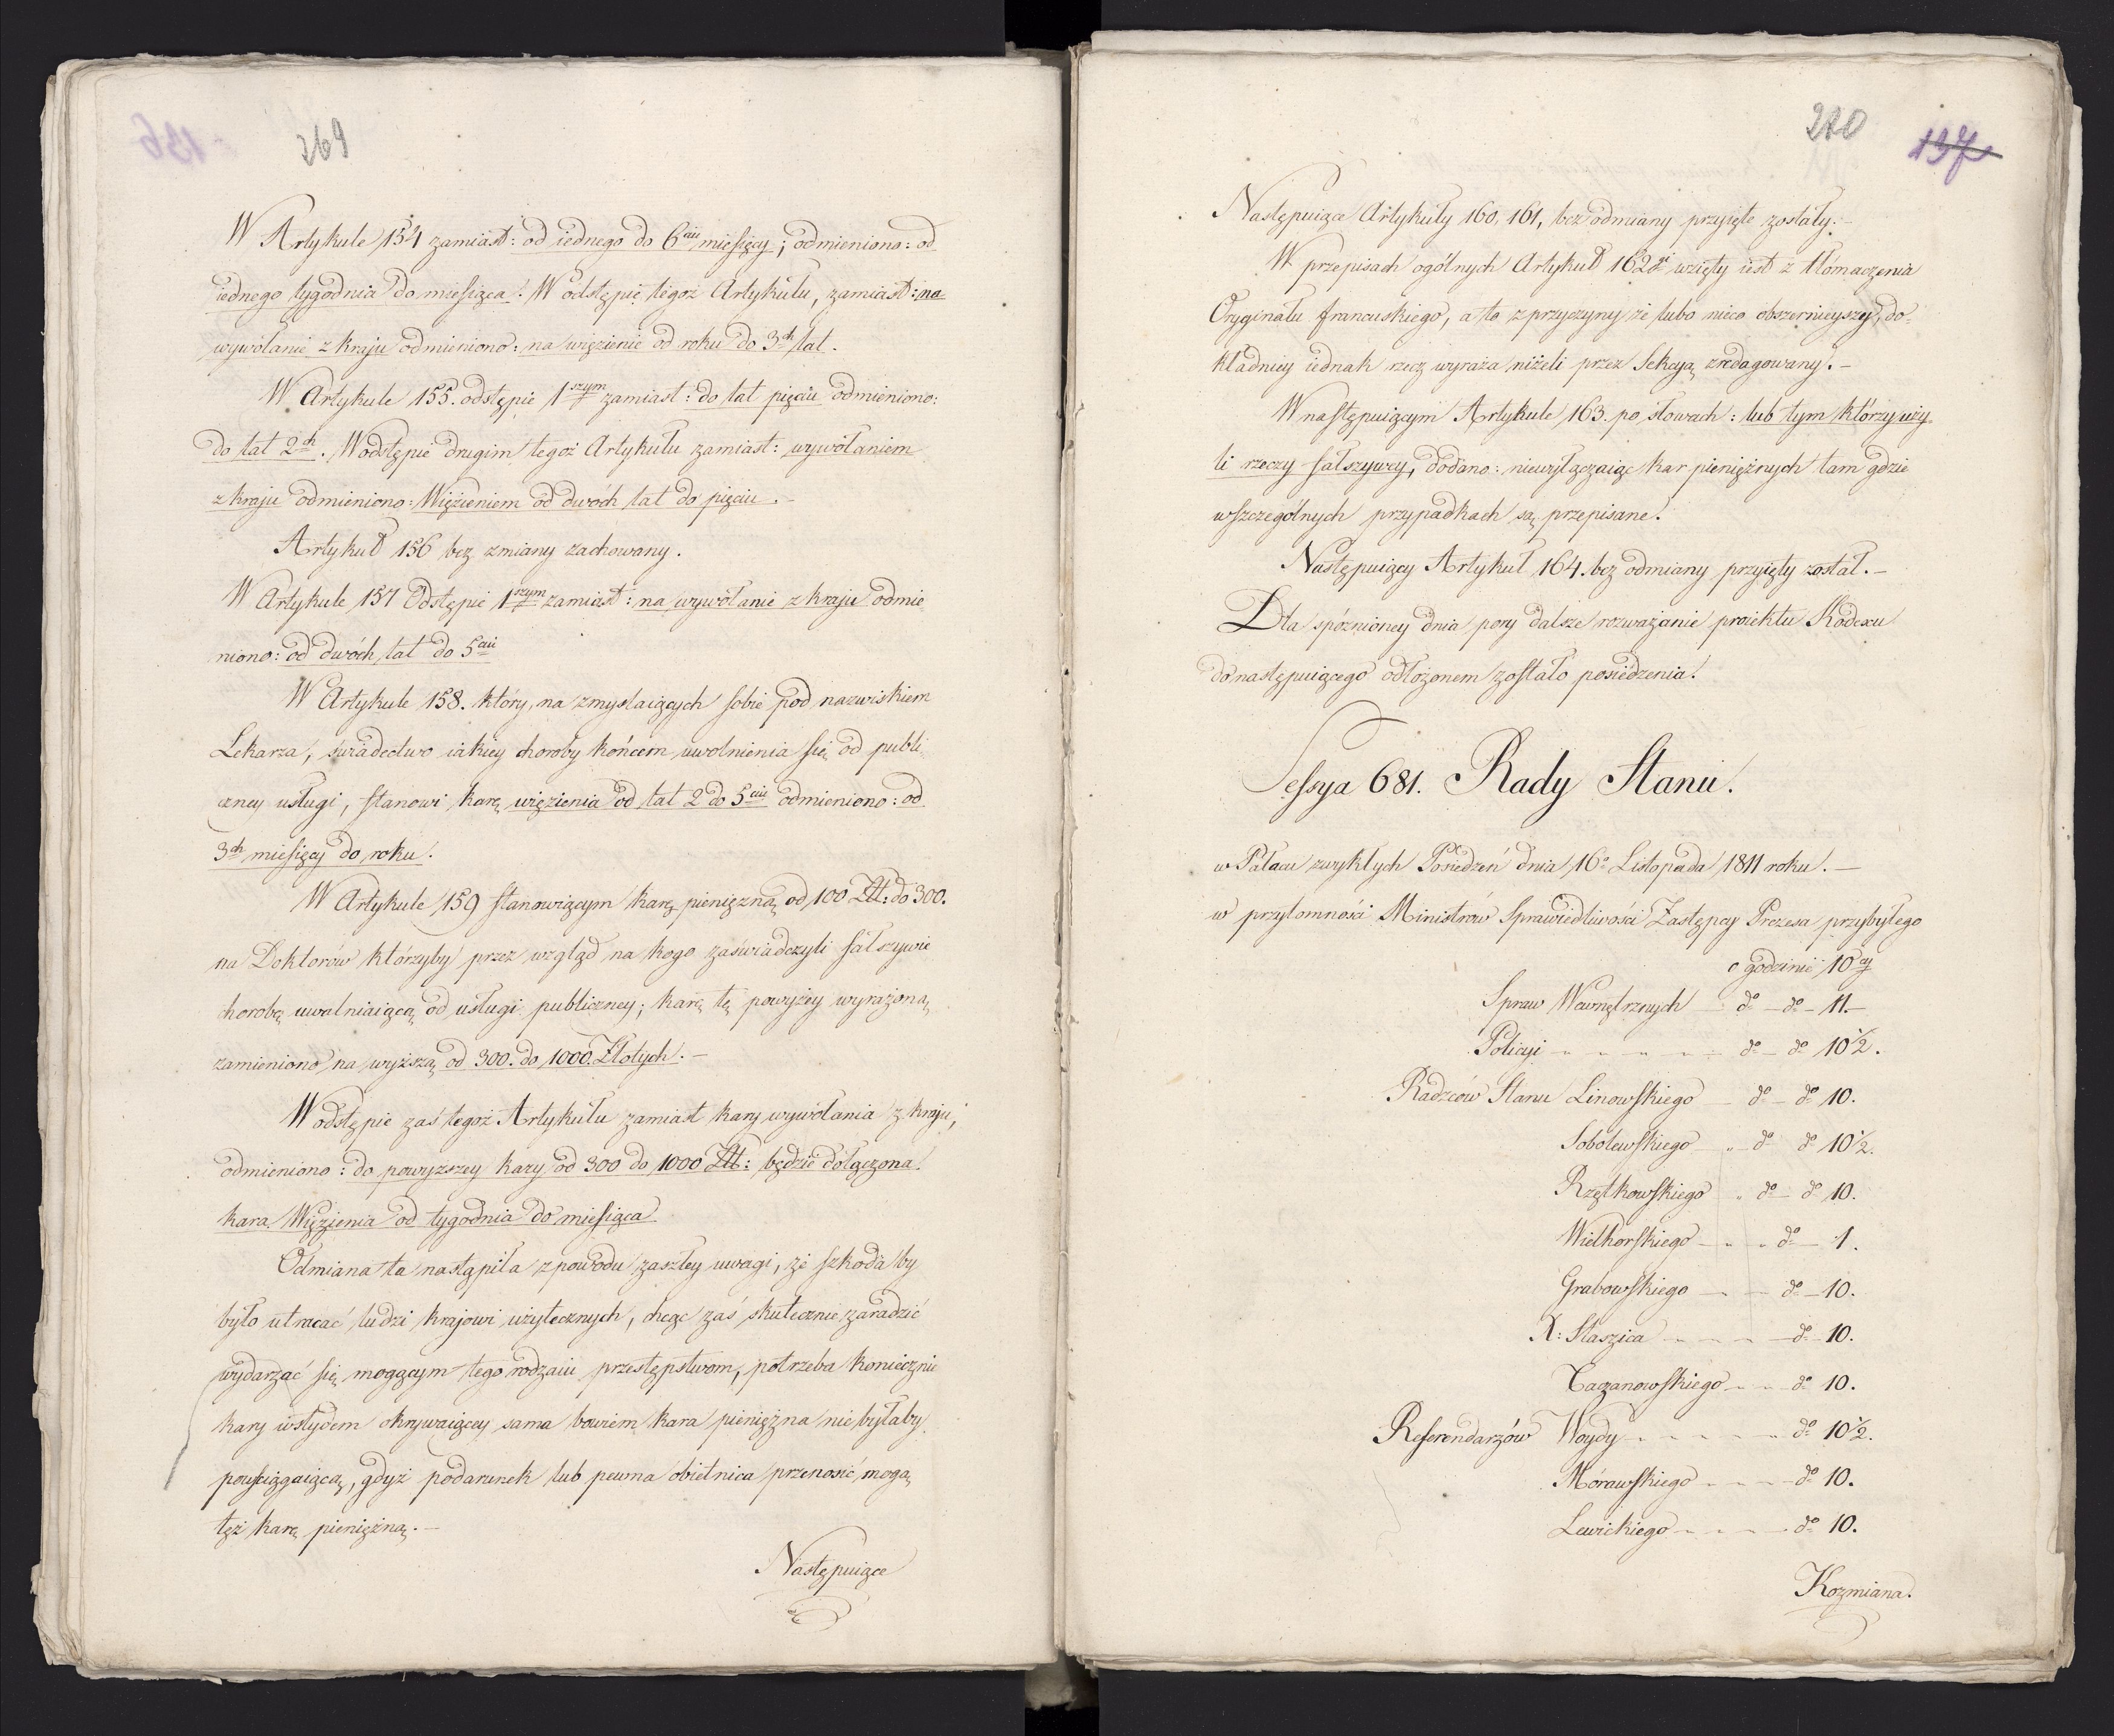 269
W Artykule 154 zamiast: od iednego do 6ciu miesięcy; odmieniono: od
iednego tygodnia do miesiąca. W odstępie tegoż Artykułu, zamiast: na
wywołanie z kraju odmieniono: na więzienie od roku do 3ch lat.
W Artykule 155. odstępie 1szym zamiast: do lat pięciu odmieniono:
do lat 2ch. W odstępie drugim tegoż Artykułu zamiast: wywołaniem
z kraju odmieniono: Więzieniem od dwóch lat do pięciu.–
Artykuł 156 bez zmiany zachowany.
W Artykule 157 Odstępie 1szym zamiast: na wywołanie z kraju odmie
niono: od dwóch lat do 5ciu
W Artykule 158. który, na zmyslaiących sobie pod nazwiskiem
Lekarza, świadectwo iakiey choroby końcem uwolnienia się od publi
czney usługi, stanowi karę więzienia od lat 2 do 5ciu odmieniono: od
3ch miesięcy do roku.
W Artykule 159 stanowiącym karę pieniężną od 100 Zlt: do 300.
na Doktorów którzyby przez wzgląd na kogo zaświadczyli fałszywie
chorobę uwalniaiącą od usługi publiczney; karę tę powyżey wyrażoną
zamieniono na wyższą od 300. do 1000. Złotych.–
W odstępie zaś tegoż Artykułu zamiast kary wywołania z kraju,
odmieniono: do powyższey kary od 300 do 1000 Zlt: będzie dołączona
kara Więzienia od tygodnia do miesiąca
Odmiana ta nastąpiła z powodu zaszłey uwagi, że szkoda by
było utracać ludzi krajowi użytecznych, chcąc zaś skutecznie zaradzić
wydarzać się mogącym tego rodzaiu przestępstwom, potrzeba koniecznie
kary wstydem okrywaiącey sama bowiem kara pieniężna nie byłaby
powsciągaiącą, gdyż podarunek lub pewna obietnica przenosić mogą
tęż karę pieniężną.–
Następuiące
270
137
Następuiące Artykuły 160, 161, bez odmiany przyięte zostały.–
W przepisach ogólnych Artykuł 162gi wzięty iest z tłómaczenia
Oryginału francuskiego, a to z przyczyny że lubo nieco obszernieyszy, do-
kładniey iednak rzecz wyraża niżeli przez Sekcyą zredagowany.–
W następuiącym Artykule 163. po słowach: lub tym którzy uży-
li rzeczy fałszywey, dodano: niewyłączaiąc kar pieniężnych tam gdzie
w szczególnych przypadkach są przepisane.
Następuiący Artykuł 164. bez odmiany przyięty został.–
Dla spóźnioney dnia pory dalsze rozważanie proiektu Kodexu
do następuiącego odłożonem zostało posiedzenia.
Sessya 681. Rady Stanu.
w Pałacu zwykłych Posiedzeń dnia 16o Listopada 1811 roku.–
w przytomności Ministrów Sprawiedliwości Zastępcy Prezesa przybyłego
o godzinie 10ey
Spraw Wewnętrznych – do – do – 11.–
Policyi – – – – – do – do 10½.
Radzców Stanu Linowskiego – do – do 10.
Sobolewskiego – „ – do do 10½.
Rzętkowskiego „ do – do 10.
Wielhorskiego – „ – „ do – 1.
Grabowskiego – – do – 10.
X: Staszica – – – – do – 10.
Taczanowskiego – – do 10.
Referendarzów Woydy – – – – – do 10½.
Morawskiego – – – – do 10.
Lewickiego – – – – do 10.
Kozmiana.